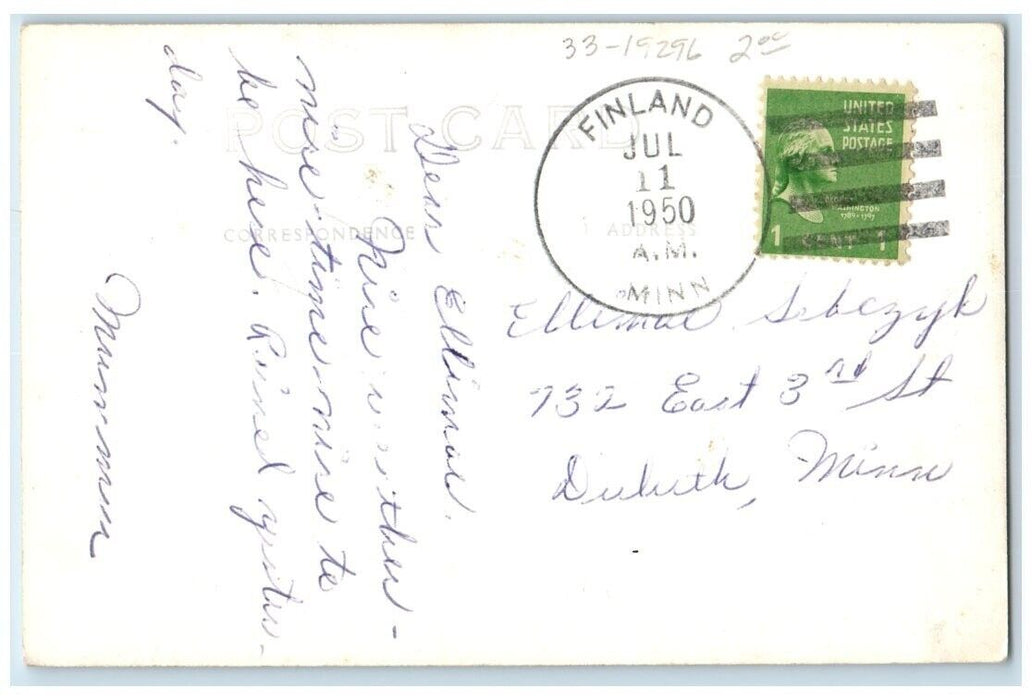 33-19296 2⁰⁰
POST CARD
CORRESPONDENCE
ADDRESS
FINLAND
JUL
11
1950
A.M.
MINN
UNITED
STATES
POSTAGE
GEORGE
WASHINGTON
1789-1797
1 CENT 1
732 East 3rd St
Duluth, Minn
Dear Ellimae.
Nice weather-
nice time-nice to
be here. Rained yester-
day.